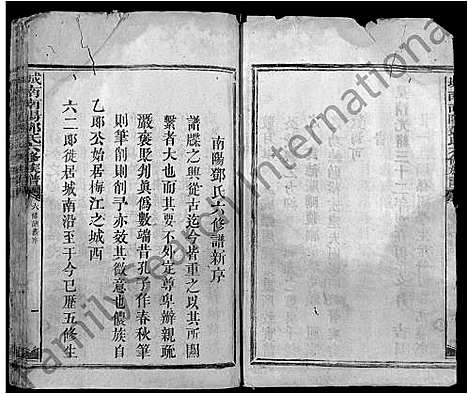 南陽鄧氏六修譜新序
譜牒之興從古迄今皆重之以其所關
繫者大也而其要不外定尊卑辨親疏
嚴褒貶列眞僞數端昔孔子作春秋筆
則筆削則削予亦效其微意也儂族自
乙郎公始居梅江之城西
六二郎徙居城南沿至于今已歷五修生
城南南陽鄧氏六修族譜
一
光緒三十二年
FamilySearch International